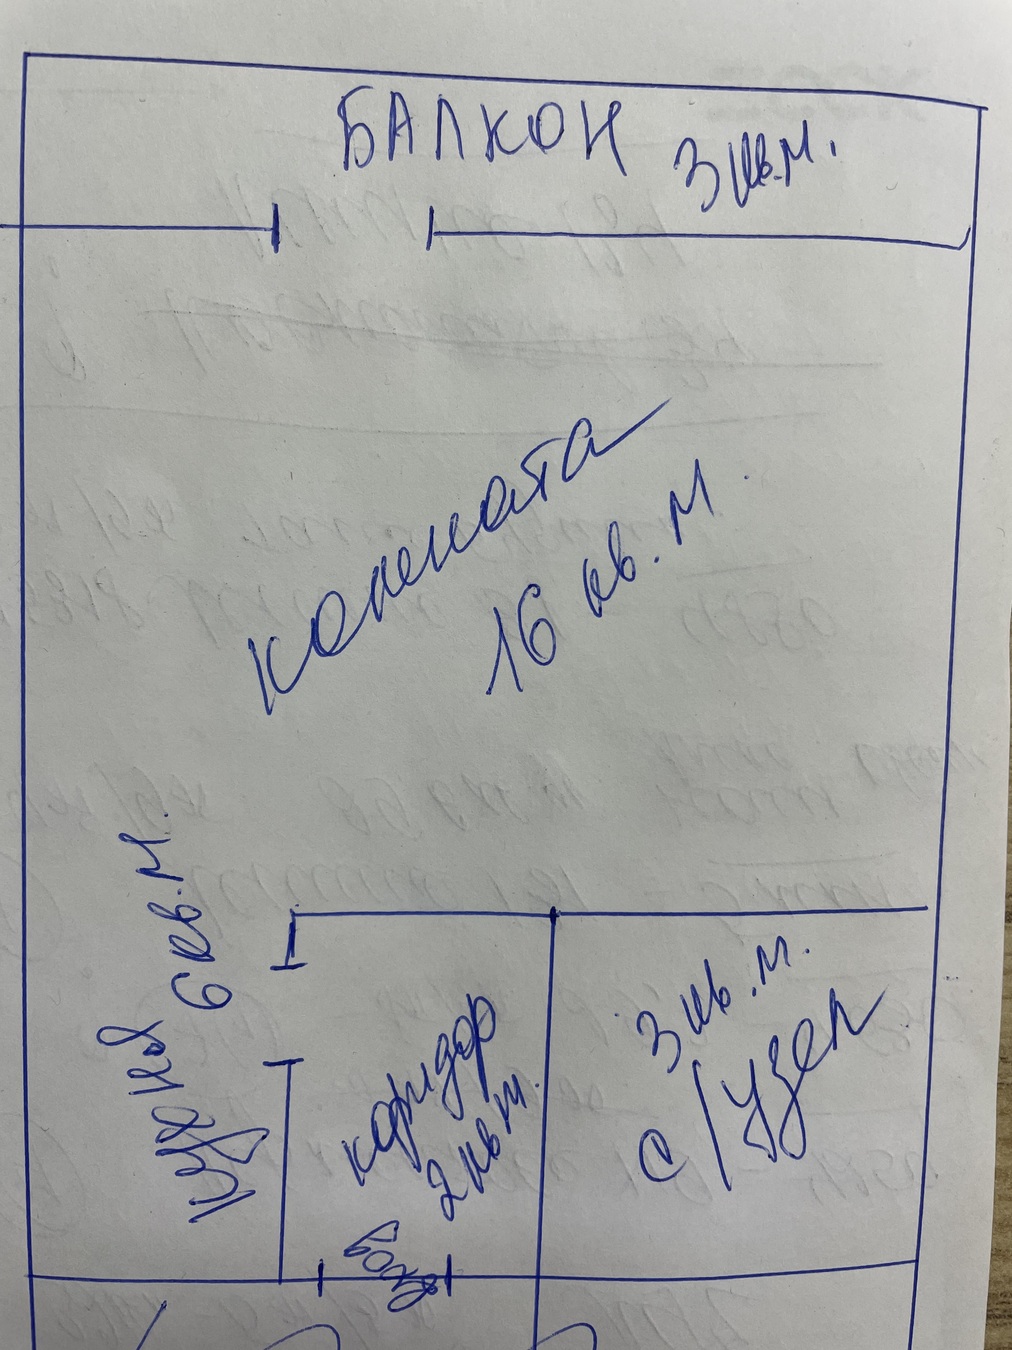 БАЛКОН
3 кв.м.
комната
16 кв.м.
кухня
6 кв.м.
коридор
2 кв м.
3 кв.м.
с/узел
вход